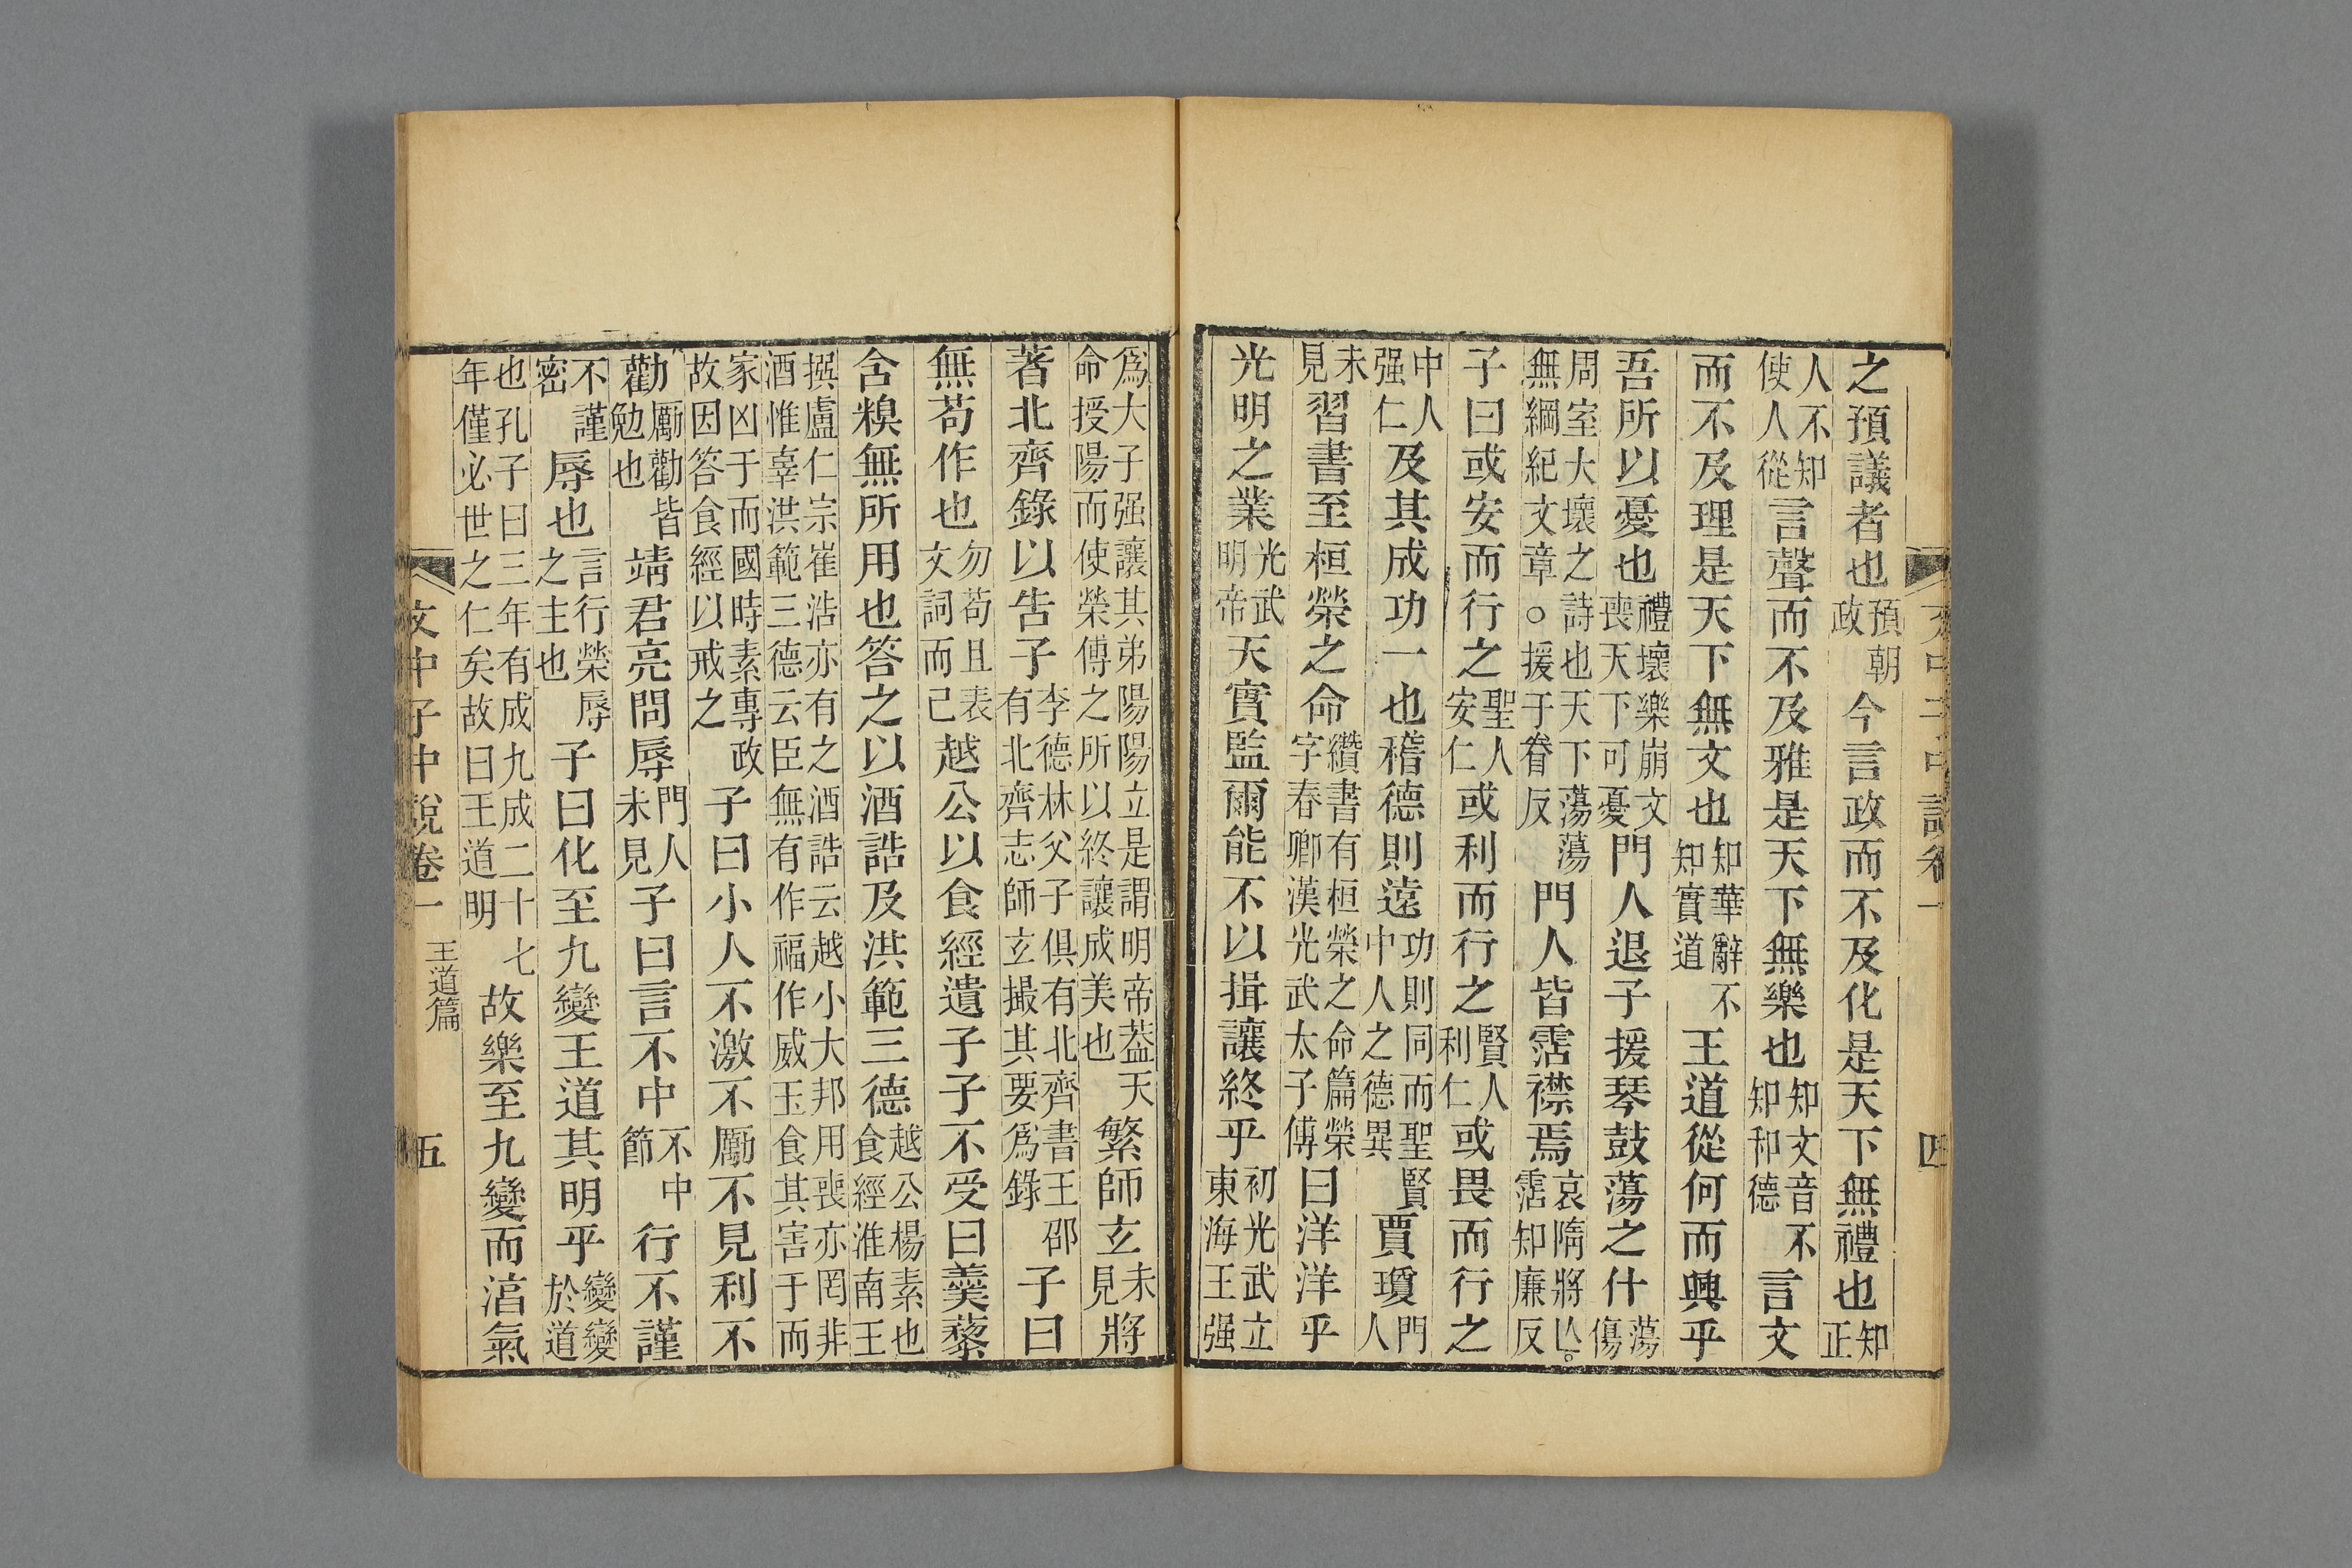 文中子中說卷一 四
之預議者也預朝政今言政而不及化是天下無禮也知正
人不知使人從言聲而不及雅是天下無樂也知文音不知和德言文
而不及理是天下無文也知華辭不知實道王道從何而興乎
吾所以憂也禮壞樂崩文喪天下可憂門人退子援琴鼓蕩之什蕩傷
周室大壞之詩也天下蕩蕩無綱紀文章○援于眷反門人皆霑襟焉哀隋將亾。霑知廉反
子曰或安而行之聖人安仁或利而行之賢人利仁或畏而行之
中人强仁及其成功一也稽德則遠功則同而聖賢中人之德異賈瓊門人
未見習書至桓榮之命續書有桓榮之命篇榮字春卿漢光武太子傅曰洋洋乎
光明之業光武明帝天實監爾能不以揖讓終乎初光武立東海王强
爲大子强讓其弟陽陽立是謂明帝葢天命授陽而使榮傅之所以終讓成美也繁師玄未見將
著北齊錄以告子李德林父子俱有北齊書王邵有北齊志師玄撮其要爲錄子曰
無苟作也勿苟且表文詞而己越公以食經遺子子不受曰羹藜
含糗無所用也答之以酒誥及洪範三德越公楊素也食經淮南王
撰盧仁宗崔浩亦有之酒誥云越小大邦用喪亦罔非酒惟辜洪範三德云臣無有作福作威玉食其害于而
家凶于而國時素專政故因答食經以戒之子曰小人不激不勵不見利不
勸勵勸皆勉也靖君亮問辱門人未見子曰言不中不中節行不謹
不謹密辱也言行榮辱之主也子曰化至九變王道其明乎變變於道
也孔子曰三年有成九成二十七年僅必世之仁矣故曰王道明故樂至九變而湻氣
文中子中說卷一 王道篇 五